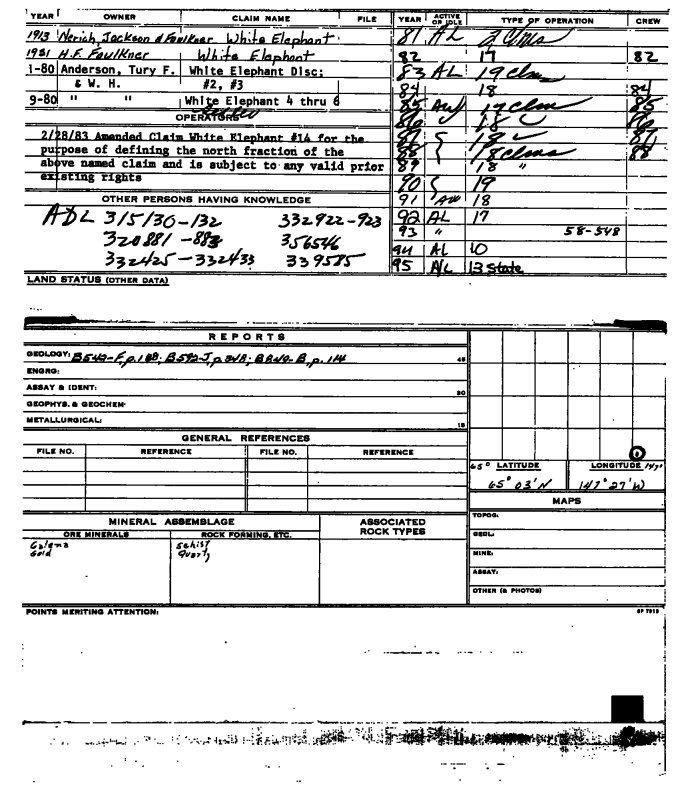 YEAR OWNER CLAIM NAME FILE
1913 Nerich, Jackson & Faulkner White Elephant
1921 H.F. Faulkner White Elephant
1-80 Anderson, Tury F. White Elephant Disc:
& W. H. #2, #3
9-80 " " White Elephant 4 thru 6
OPERATORS
2/28/83 Amended Claim White Elephant #14 for the
purpose of defining the north fraction of the
above named claim and is subject to any valid prior
existing rights
OTHER PERSONS HAVING KNOWLEDGE
ADL 315130-132 332922-923
320881-883 356546
332425-332433 339585
LAND STATUS (OTHER DATA)
YEAR ACTIVE OR IDLE TYPE OF OPERATION CREW
81 AL 2 Clms
82 17 82
83 AL 19 clm
84 18 84
85 AW 17 clm 85
86 18 86
87 19 87
88 18 clms 88
89 18 "
90 19
91 AW 18
92 AL 17
93 " 58-548
94 AL 10
95 AL 13 State
REPORTS
GEOLOGY: B542-F, p.168; B592-J, p.348; B849-B, p.114 45
ENGRG:
ASSAY & IDENT: 30
GEOPHYS. & GEOCHEM:
METALLURGICAL: 15
GENERAL REFERENCES
FILE NO. REFERENCE FILE NO. REFERENCE
65° LATITUDE LONGITUDE 147°
65° 03' N 147° 27' W
MAPS
TOPOG:
GEOL:
MINE:
ASSAY:
OTHER (& PHOTOS)
MINERAL ASSEMBLAGE
ORE MINERALS ROCK FORMING, ETC.
ASSOCIATED
ROCK TYPES
Galena Schist
Gold Quartz
POINTS MERITING ATTENTION: SP 7913